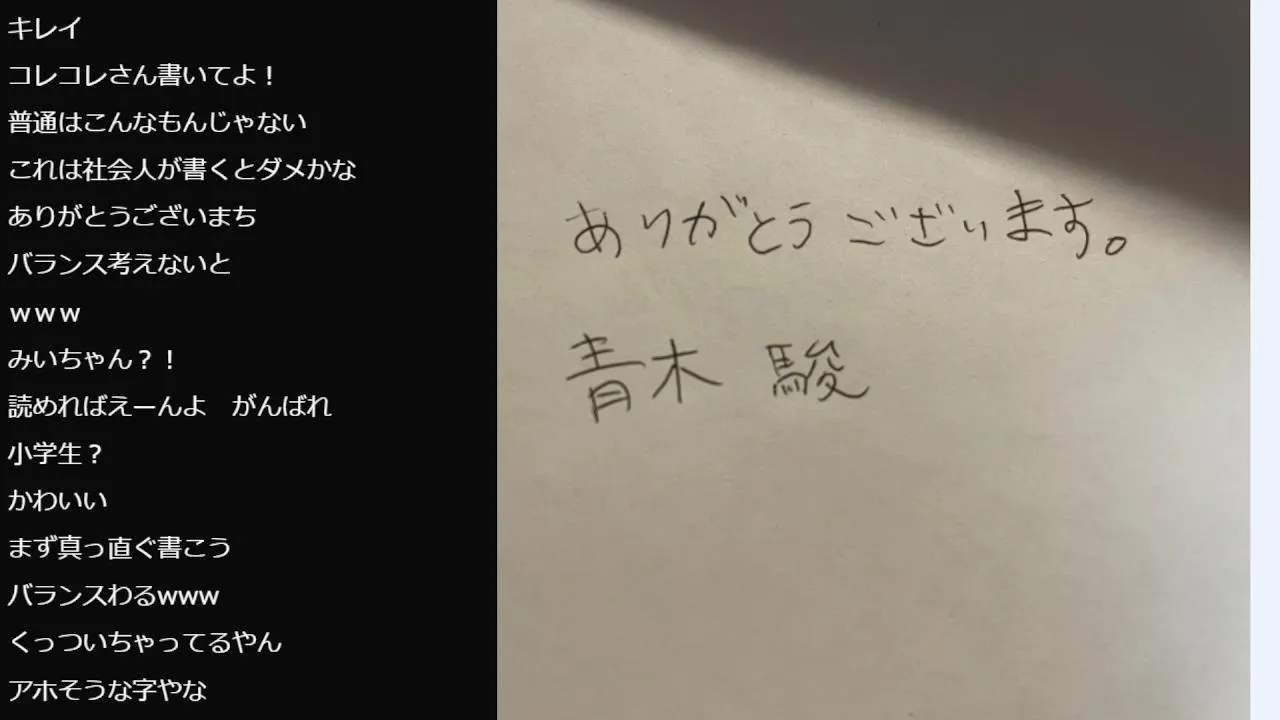 キレイ
コレコレさん書いてよ！
普通はこんなもんじゃない
これは社会人が書くとダメかな
ありがとうございまち
バランス考えないと
ｗｗｗ
みいちゃん？！
読めればえーんよ　がんばれ
小学生？
かわいい
まず真っ直ぐ書こう
バランスわるwww
くっついちゃってるやん
アホそうな字やな
ありがとうございます。
青木 駿